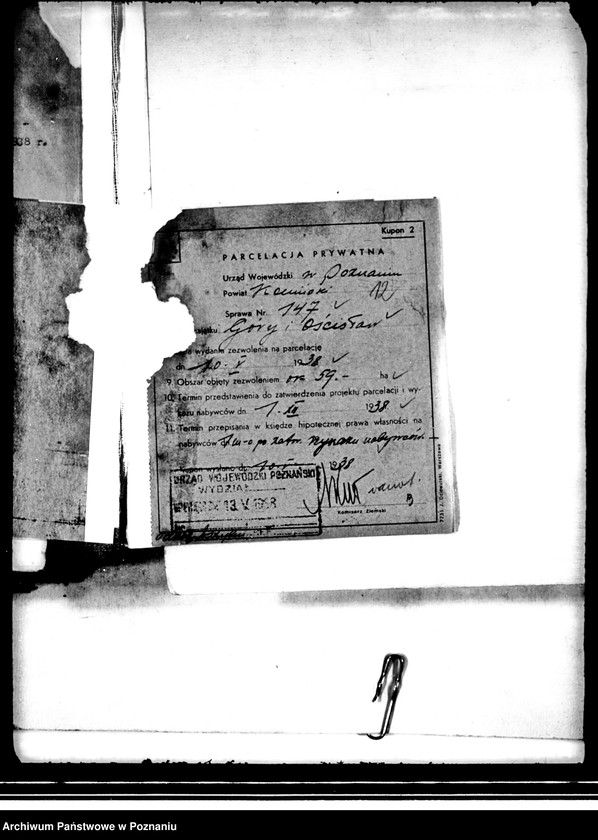 38 r.
Kupon 2
PARCELACJA PRYWATNA
Urząd Wojewódzki w Poznaniu
Powiat Koniński 12
Sprawa Nr. 147
majątku Góry i Ościsław
wydania zezwolenia na parcelację
dn. 10. V 1938
9. Obszar objęty zezwoleniem ok. 59.- ha
10. Termin przedstawienia do zatwierdzenia projektu parcelacji i wy-
kazu nabywców dn. 1. XII 1938.
11. Termin przepisania w księdze hipotecznej prawa własności na
nabywców po zatw. wykazu nabywców.
Kupon wysłano dn. 10. V 1938
URZĄD WOJEWÓDZKI POZNAŃSKI
WYDZIAŁ
13. V. 1938
Komisarz Ziemski
Archiwum Państwowe w Poznaniu